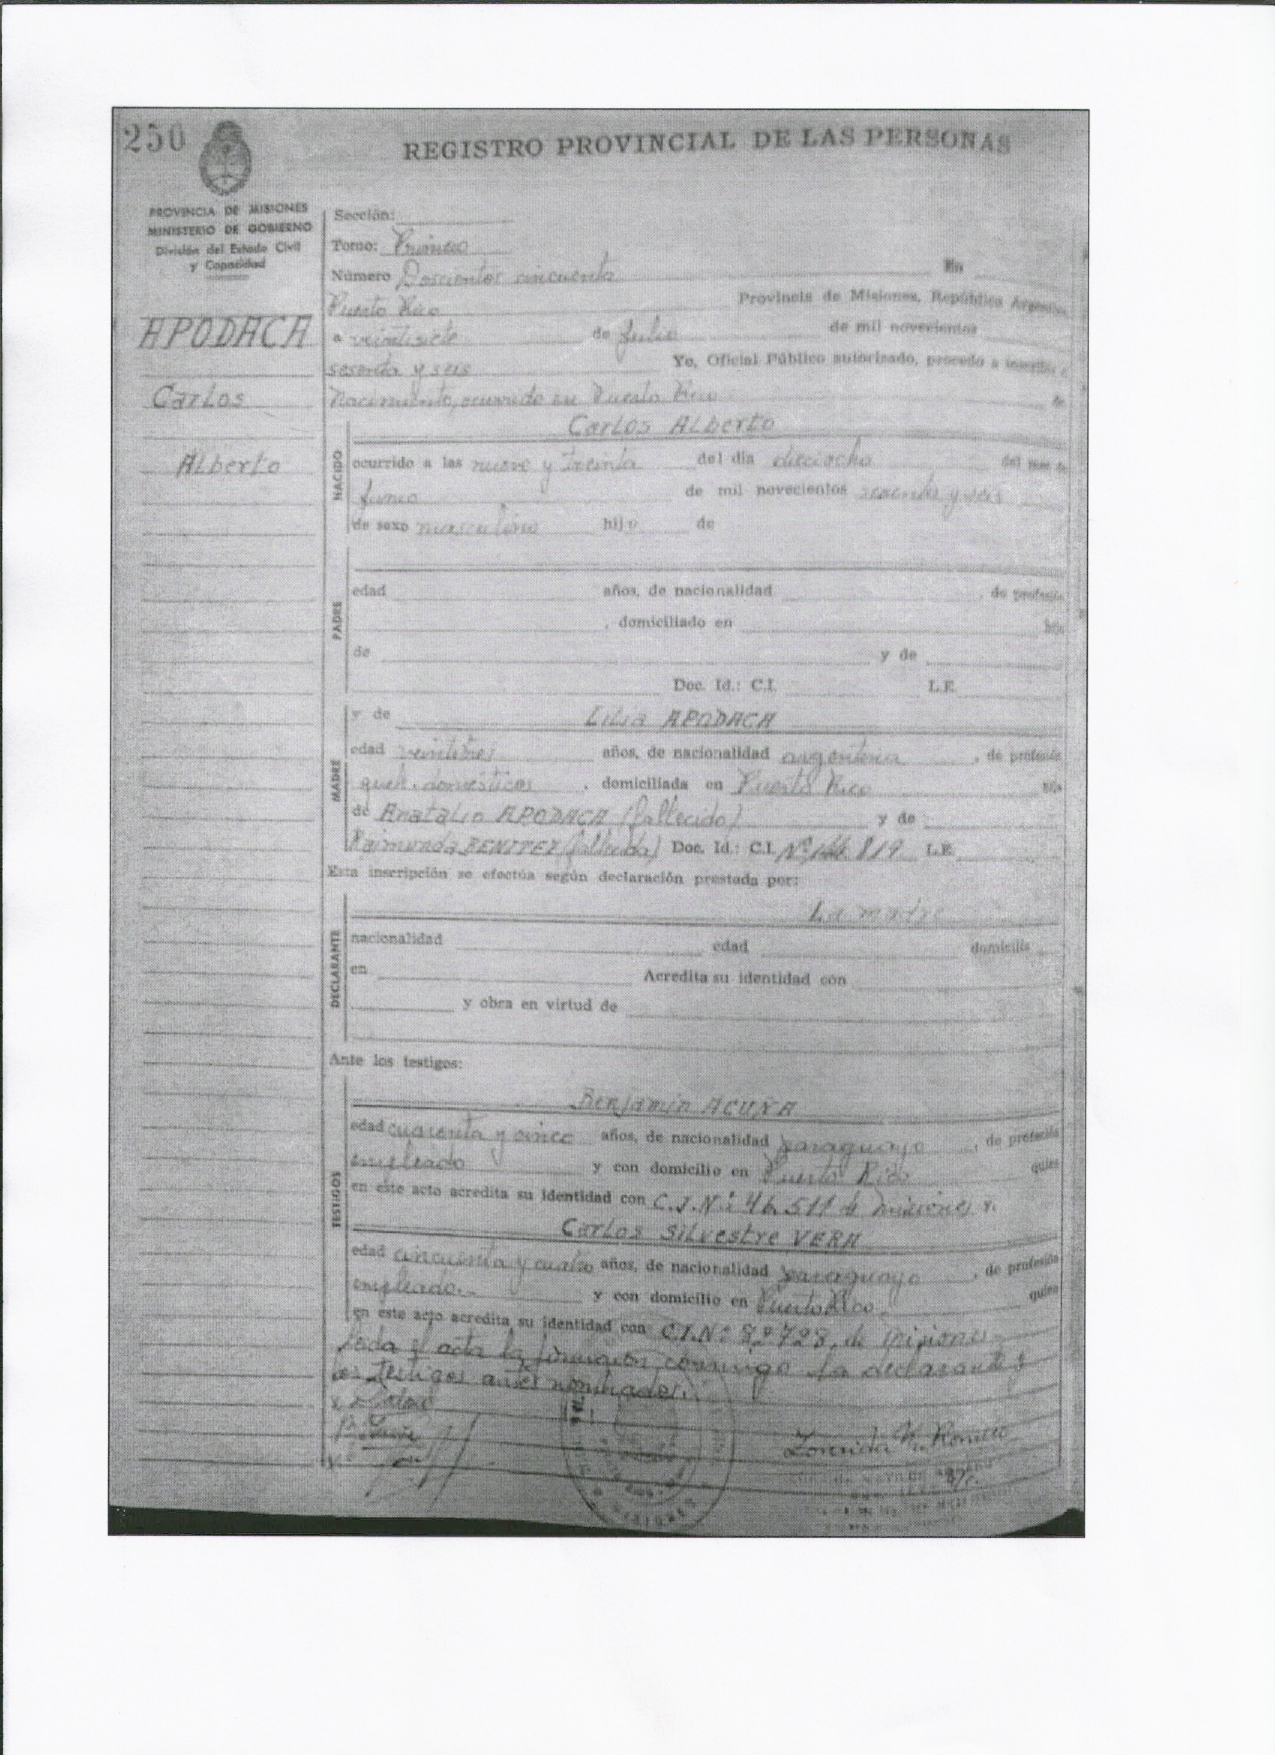 250
REGISTRO PROVINCIAL DE LAS PERSONAS
PROVINCIA DE MISIONES
MINISTERIO DE GOBIERNO
División del Estado Civil
y Capacidad
APODACA
Carlos
Alberto
Sección:
Tomo: Primero
Número Doscientos cincuenta En
Puerto Rico Provincia de Misiones, República Argentina,
a veintisiete de Julio de mil novecientos
sesenta y seis Yo, Oficial Público autorizado, procedo a inscribir
nacimiento, ocurrido en Puerto Rico de
NACIDO
Carlos Alberto
ocurrido a las nueve y treinta del día dieciocho del mes de
Junio de mil novecientos sesenta y seis
de sexo masculino hijo de
PADRE
edad años, de nacionalidad , de profesión
, domiciliado en hijo
de y de
Doc. Id.: C.I. L.E.
MADRE
y de Lilia APODACA
edad veintitres años, de nacionalidad argentina , de profesión
queh. domésticos , domiciliada en Puerto Rico hija
de Anatalio APODACA (fallecido) y de
Raimunda BENITEZ (fallecida) Doc. Id.: C.I. Nº 819 L.E.
Esta inscripción se efectúa según declaración prestada por:
DECLARANTE
La madre
nacionalidad edad domicilio
en Acredita su identidad con
y obra en virtud de
Ante los testigos:
TESTIGOS
Benjamin ACUÑA
edad cuarenta y cinco años, de nacionalidad paraguayo , de profesión
empleado y con domicilio en Puerto Rico quien
en este acto acredita su identidad con C.I.Nº 46.511 de Misiones y.
Carlos Silvestre VERA
edad cincuenta y cuatro años, de nacionalidad paraguayo , de profesión
empleado.- y con domicilio en Puerto Rico quien
en este acto acredita su identidad con C.I.Nº 82728, de Misiones
Leida el acta la firmaron conmigo la declarante y
los testigos antes nombrados.
MISIONES